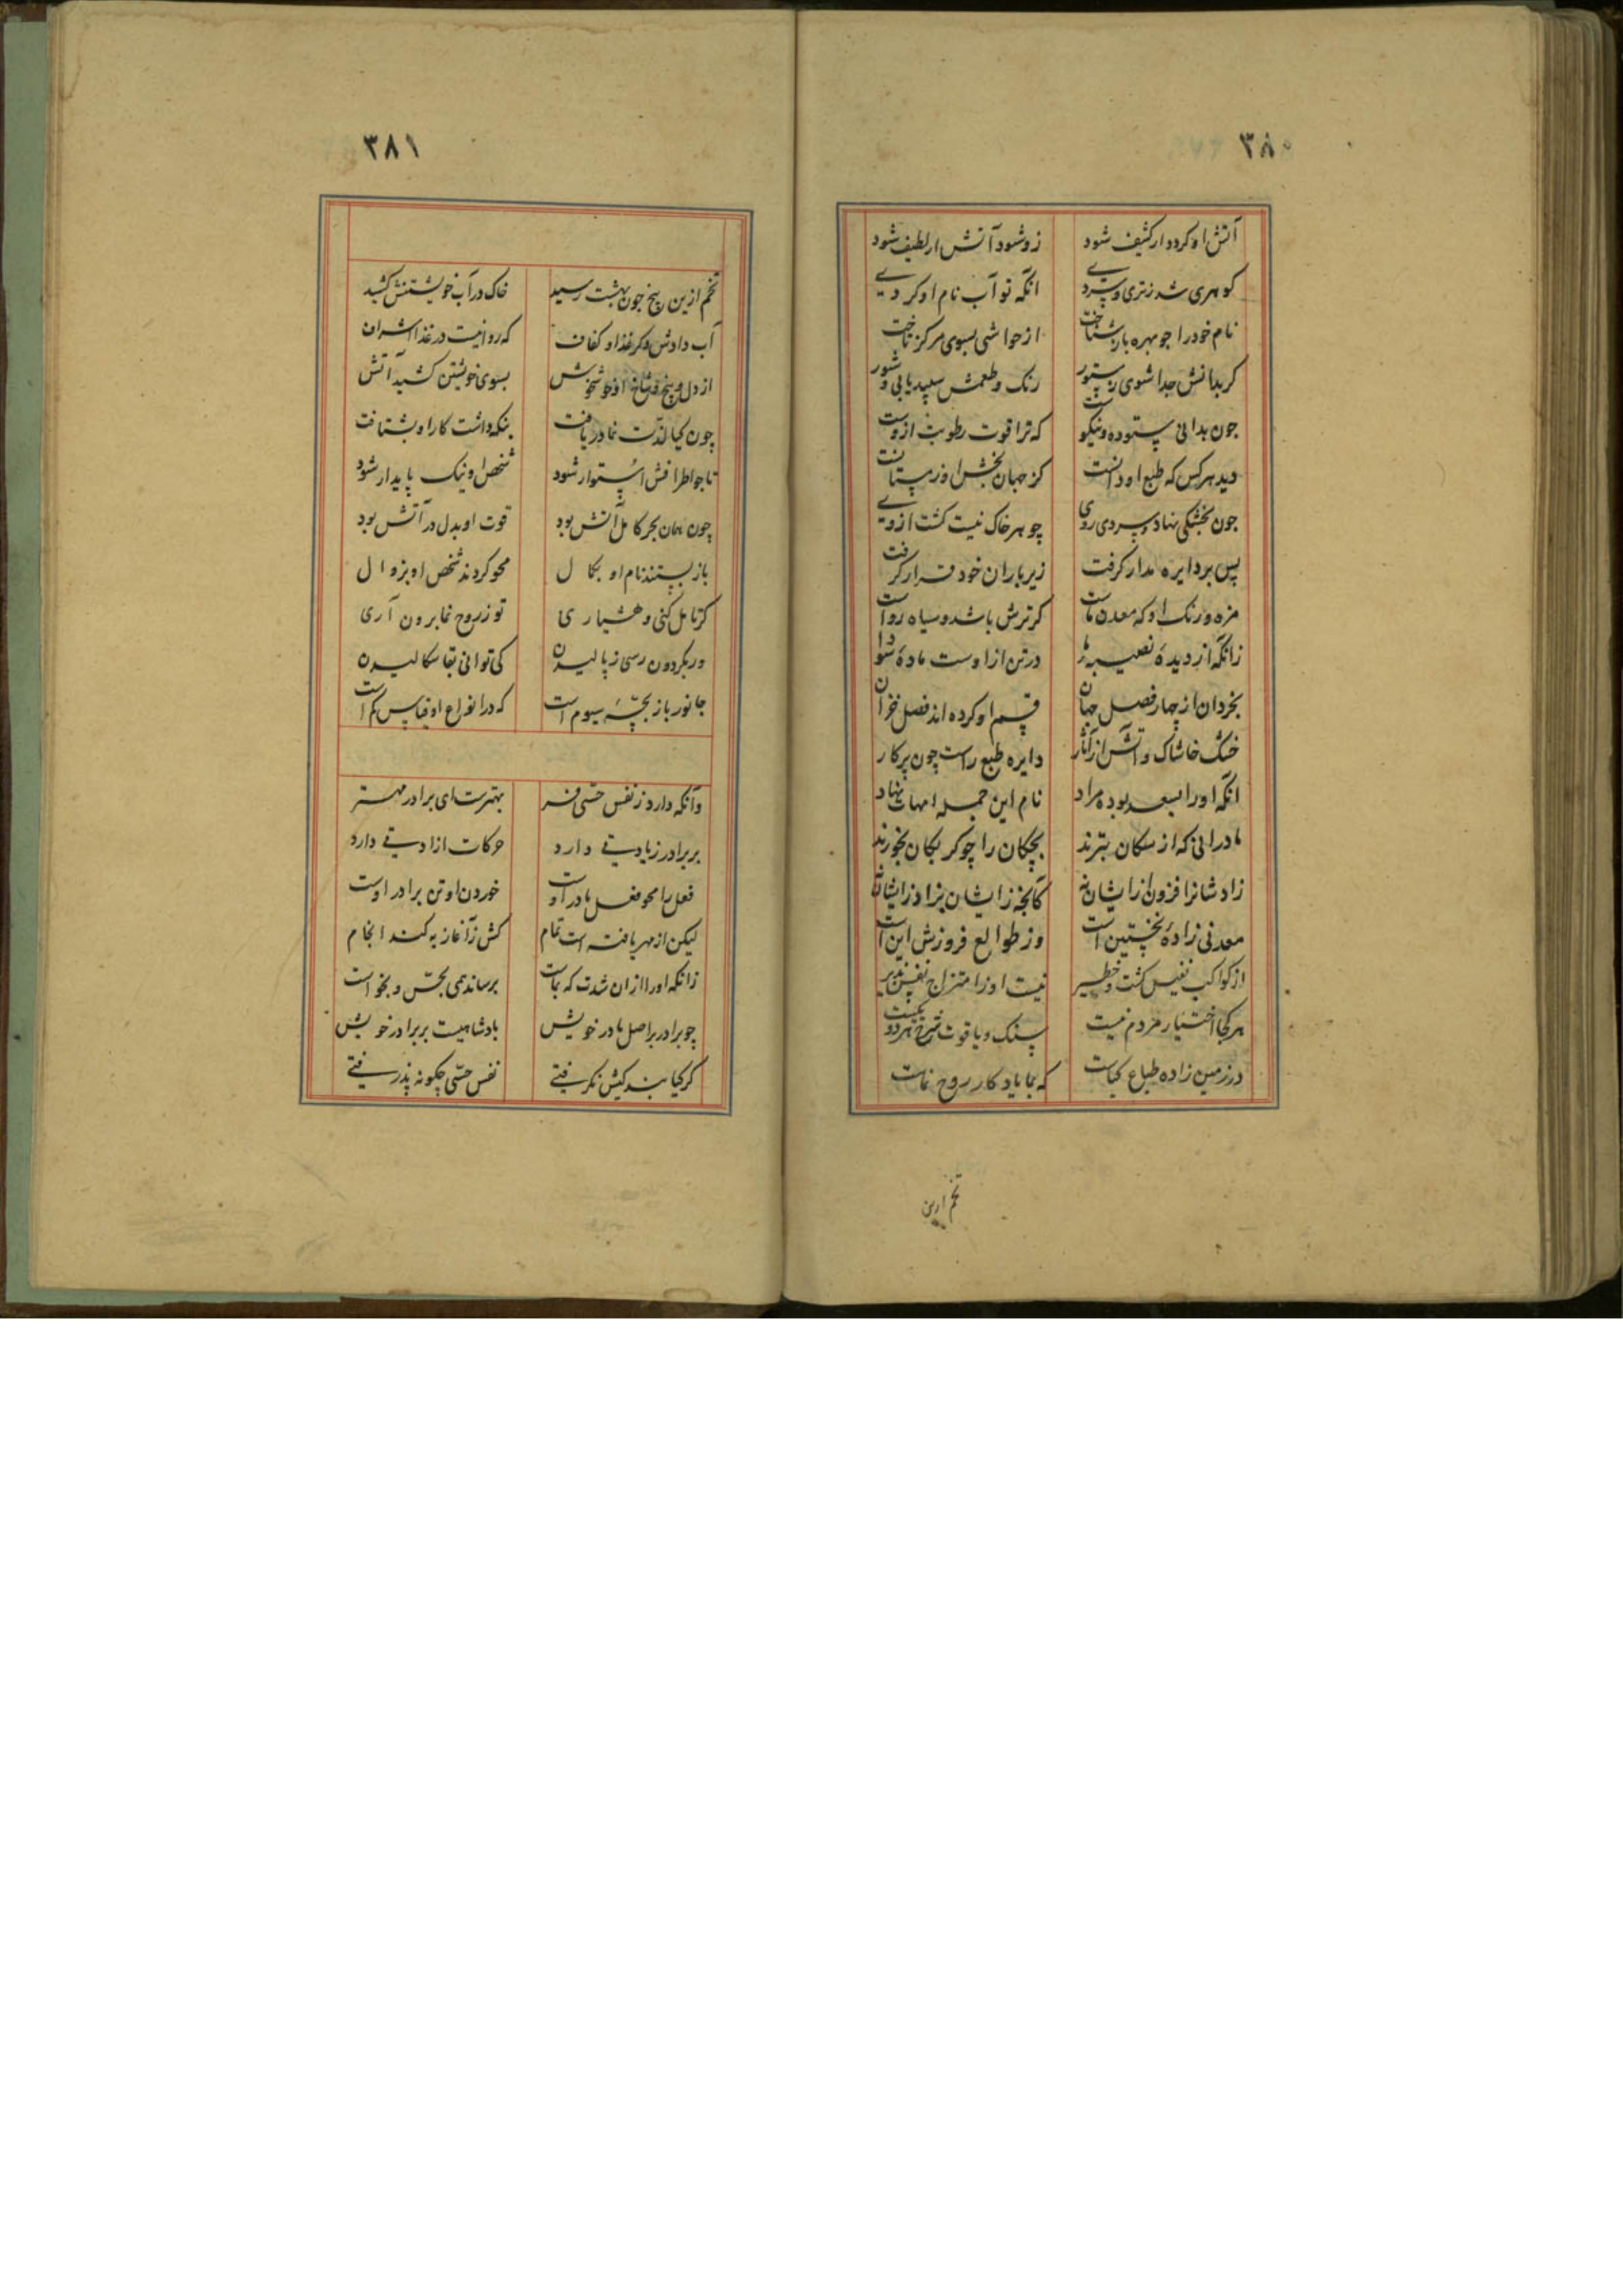 ٣٨٠
آتش او کردد ار کثیف شود زو شود آتش ار لطیف شود
کوهری شد زتری و سردی انکه تو آب نام او کردی
نام خود را جو مهره باز شناخت از حواشی بسوی مرکز تاخت
کر بدانش جدا شوی ز ستور رنک و طعمش سپید یابی و شور
جون بدانی ستوده و نیکوست که ترا قوت رطوبت ازوست
دید هرکس که طبع او دانست کز جهان بخش او زمستانست
جون بخشکی نهاد و سردی روی جوهر خاک نیست کشت ازوی
پس بر دایره مدار کرفت زیر یاران خود قرار کرفت
مزه و رنک او که معدن ماست کر ترش باشد و سیاه رواست
زانکه از دیده نصیبه ما در تن از اوست ماده سودا
بخردان از چهار فصل جهان قسم او کرده اند فصل خزان
خشک خاشاک و آتش از آثار دایره طبع راست چون پرکار
انکه او را بسعد بوده مراد نام این جمله امهات نهاد
مادرانی که از سکان بترند بچکان را چو کربکان بخورند
زاد شانرا فزون از ایشان نه کانچه زایشان بزاد زایشان به
معدنی زاده نخستین است وز طوالع فروزش این است
از کواکب نفیس کشت و خطیر نیست او را مزاج نفس پذیر
هر کجا اختیار مردم نیست سنک و یاقوت سرخ هر دو یکیست
در زمین زاده طباع کیاست که بما یادکار روح نماست
تخم ازین
٣٨١
تخم ازین پنج جون بهشت رسید خاک در آب خویشتنش کشید
آب دادش دکر غذا و کفاف که روا نیست در غذا اسراف
از دل و پنج و شاخ او خوش خوش بسوی خویشتن کشید آتش
چون کیا لذت نما دریافت بنکه داشت کار او بشتافت
تا جو اطرافش استوار شود شخص او نیک پایدار شود
چون همان بحر کامل آتش بود قوت او بدل در آتش بود
باز بستند نام او بکمال محو کردند شخص او بزوال
کر تامل کنی و هشیاری تو ز روح نما برون آری
ور بکردون رسی ز بالیدن کی توانی بقا سکالیدن
جانور باز بچه سیوم است که در انواع او قیاس کم است
وآنکه دارد ز نفس حسی فر بهترست ای برادر مهتر
بر برادر زیادتی دارد حرکات ازادتی دارد
فعل را محو فعل مادر اوست خوردن او تن برادر اوست
لیکن از مهر یافته است تمام کش زآغاز به کند انجام
زانکه او را ازان شدت که بماست برساند همی بحس و بخواست
چو برادر بر اصل مادر خویش بادشاهیست بر برادر خویش
کر کیا بند کیش نکرفتی نفس حسی چکونه پذرفتی